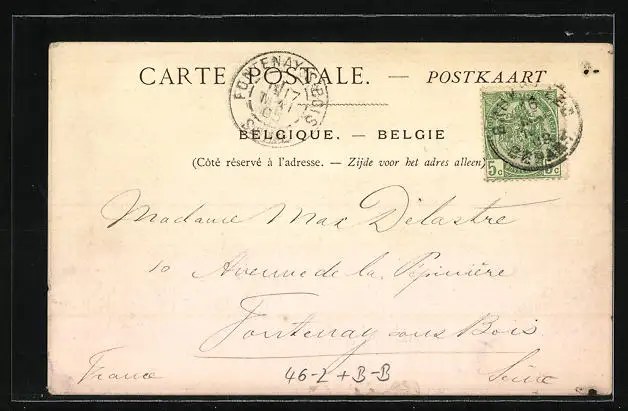 CARTE POSTALE. — POSTKAART
FONTENAY-S-BOIS
17
MAI
BELGIQUE. — BELGIE
(Côté réservé à l'adresse. — Zijde voor het adres alleen)
5c 5c
Madame Max Delastre
10 Avenue de la Pépinière
Fontenay sous Bois
France
46-L+B-B
Seine